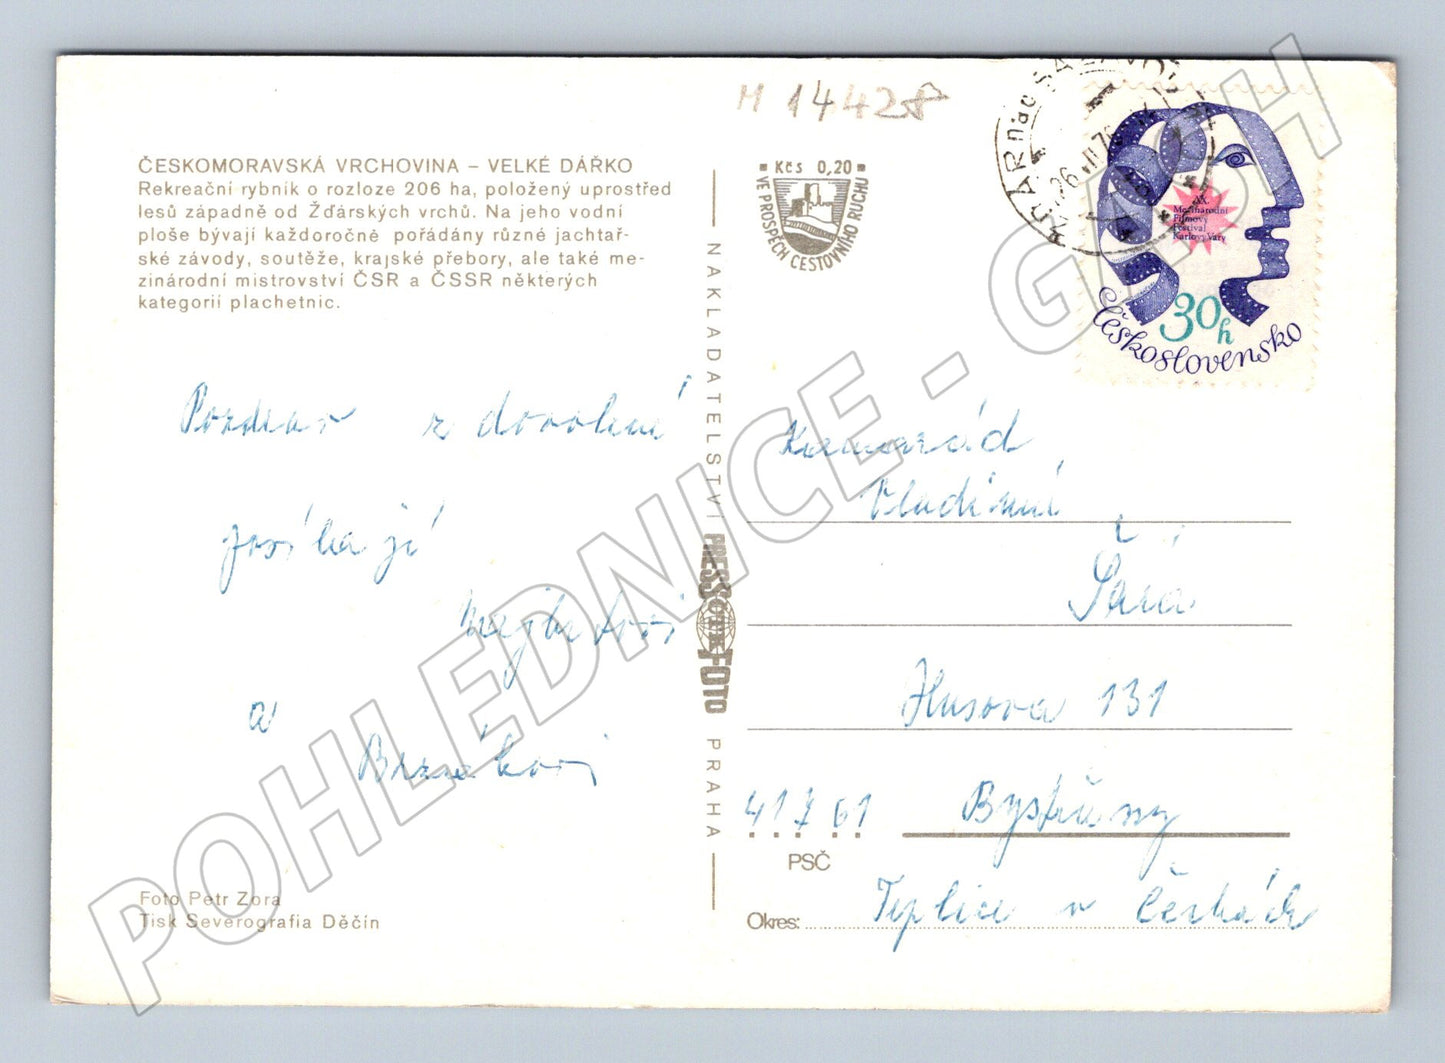 M 14428
ČESKOMORAVSKÁ VRCHOVINA – VELKÉ DÁŘKO
Rekreační rybník o rozloze 206 ha, položený uprostřed
lesů západně od Žďárských vrchů. Na jeho vodní
ploše bývají každoročně pořádány různé jachtař-
ské závody, soutěže, krajské přebory, ale také me-
zinárodní mistrovství ČSR a ČSSR některých
kategorií plachetnic.
Pozdrav z dovolené
posílají
a
Foto Petr Zora
Tisk Severografia Děčín
NAKLADATELSTVÍ PRESSFOTO PRAHA
Kčs 0,20
VE PROSPĚCH CESTOVNÍHO RUCHU
ŽĎÁR nad SÁZAVOU
XX.
Mezinárodní
Filmový
Festival
Karlovy Vary
30h
Československo
Kamarád
Vladimír
Šára
Husova 131
417 61 Bystřany
PSČ
Okres: Teplice v Čechách
POHLEDNICE - GASH